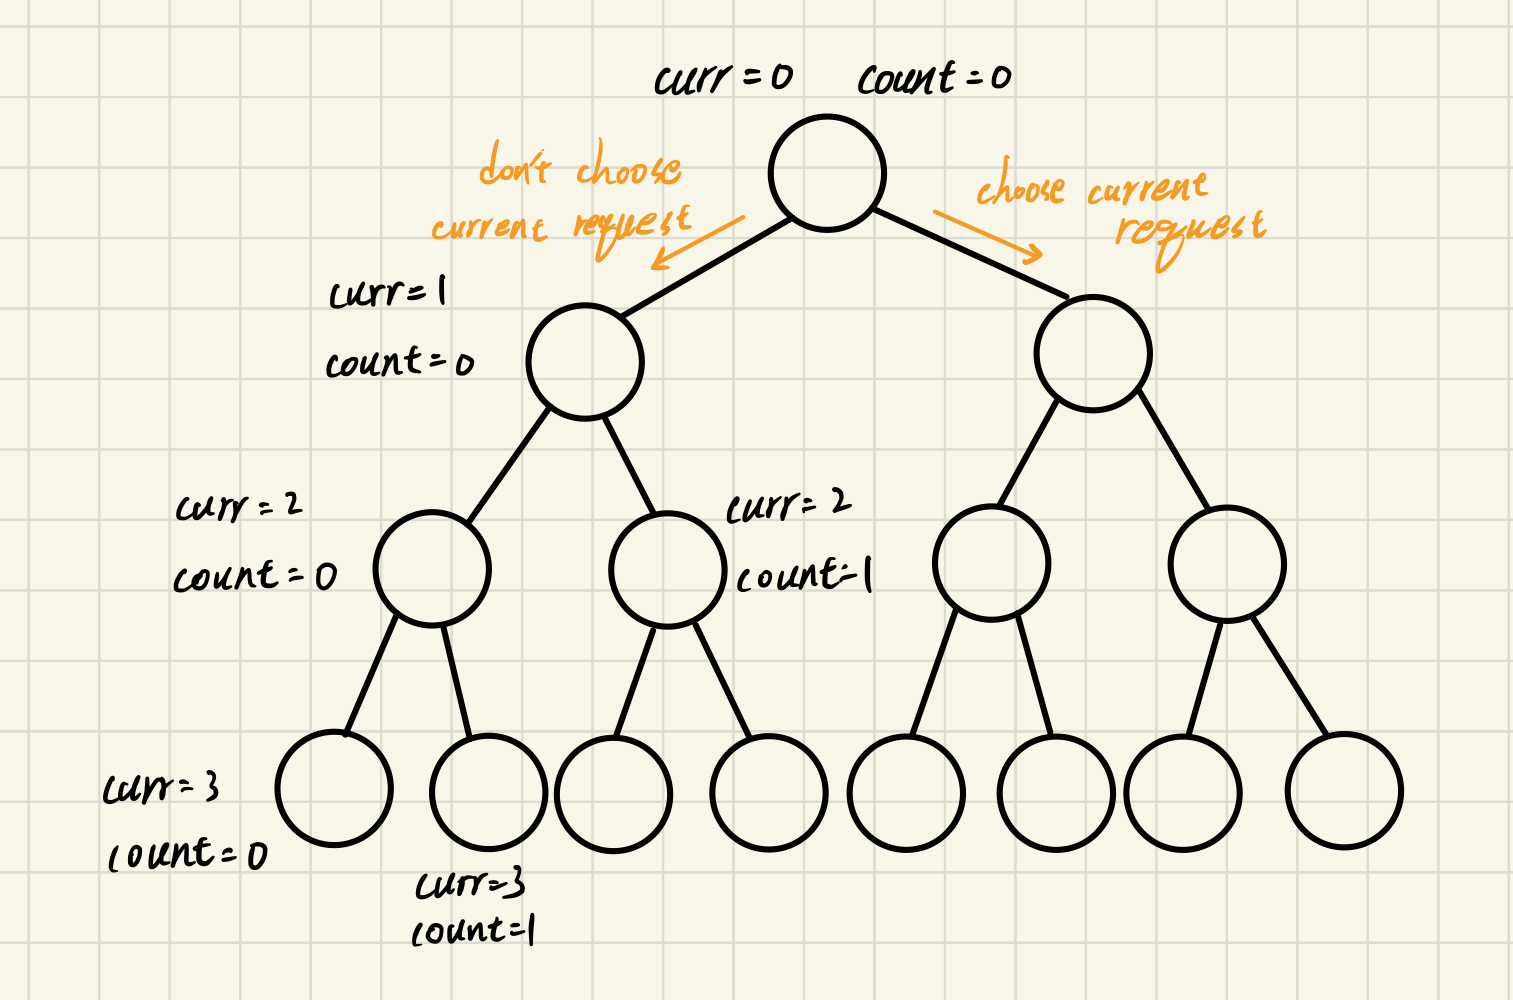 curr = 0 count = 0
don't choose
current request
choose current
request
curr = 1
count = 0
curr = 2
count = 0
curr = 2
count = 1
curr = 3
count = 0
curr = 3
count = 1